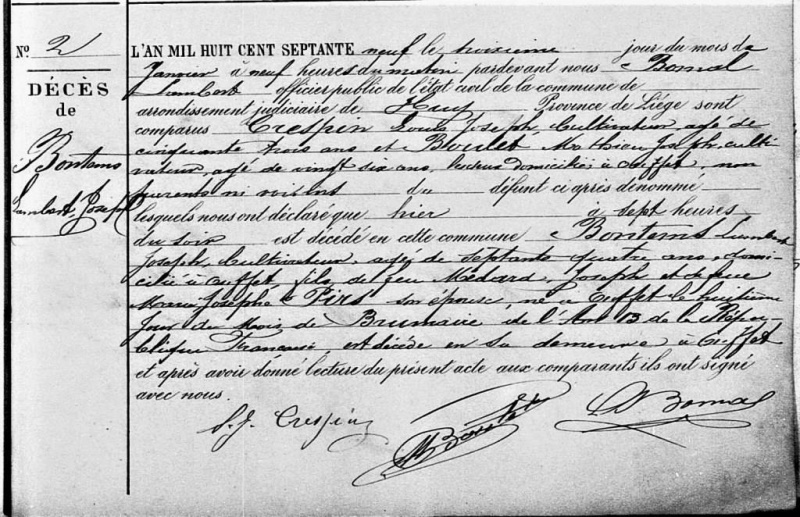 N.º 2
DÉCÈS
de
Bontems
Lambert Joseph
L'AN MIL HUIT CENT SEPTANTE neuf le troisième jour du mois de
Janvier à neuf heures du matin pardevant nous Bomal
Lambert officier public de l'état civil de la commune de
arrondissement judiciaire de Huy Province de Liége sont
comparus Crespin Louis Joseph, Cultivateur, agé de
cinquante trois ans et Boulet Mathieu Joseph, culti-
vateur, agé de vingt six ans, tous deux domiciliés à Ouffet, non
parents ni voisins du défunt ci après dénommé
lesquels nous ont déclaré que hier à sept heures
du soir est décédé en cette commune Bontems Lambert
Joseph, Cultivateur, agé de septante quatre ans, domi-
cilié à Ouffet, fils de feu Médard Joseph et de feue
Marie Josephe Pirs son épouse, né à Ouffet le huitième
jour du Mois de Brumaire de l'An 13 de la Répu-
blique Française, est décédé en sa demeure à Ouffet
et après avoir donné lecture du présent acte aux comparants ils ont signé
avec nous.
L. J. Crespin
L Bomal